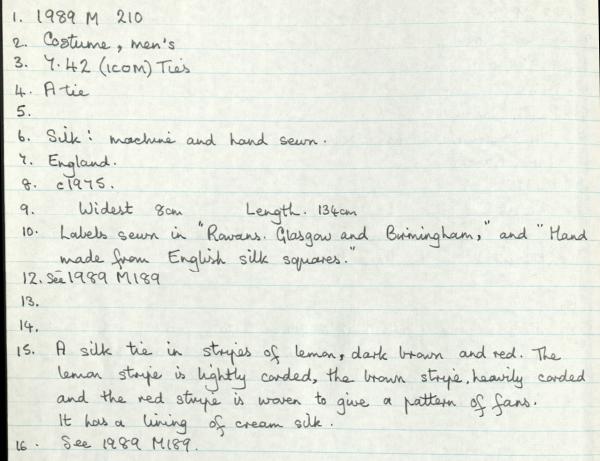 1. 1989 M 210
2. Costume, men's
3. 7.42 (ICOM) Ties
4. A tie
5.
6. Silk: machine and hand sewn.
7. England.
8. c1975.
9. Widest 8cm Length. 134cm
10. Labels sewn in "Rowans. Glasgow and Birmingham," and "Hand
made from English silk squares."
12. See 1989 M189
13.
14.
15. A silk tie in stripes of lemon, dark brown and red. The
lemon stripe is lightly corded, the brown stripe, heavily corded
and the red stripe is woven to give a pattern of fans.
It has a lining of cream silk.
16. See 1989 M189.